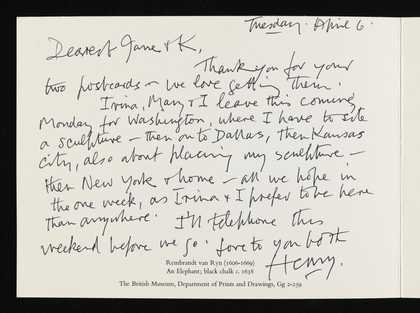 Tuesday. April 6.
Dearest Jane & K,
Thank you for your
two postcards – we love getting them.
Irina, Mary & I leave this coming
Monday for Washington, where I have to site
a sculpture – then on to Dallas, then Kansas
City, also about placing my sculpture –
then New York & home – all we hope in
the one week, as Irina & I prefer to be here
than anywhere. I'll telephone this
weekend before we go. Love to you both
Henry.
Rembrandt van Ryn (1606-1669)
An Elephant; black chalk c. 1638
The British Museum, Department of Prints and Drawings, Gg 2-259